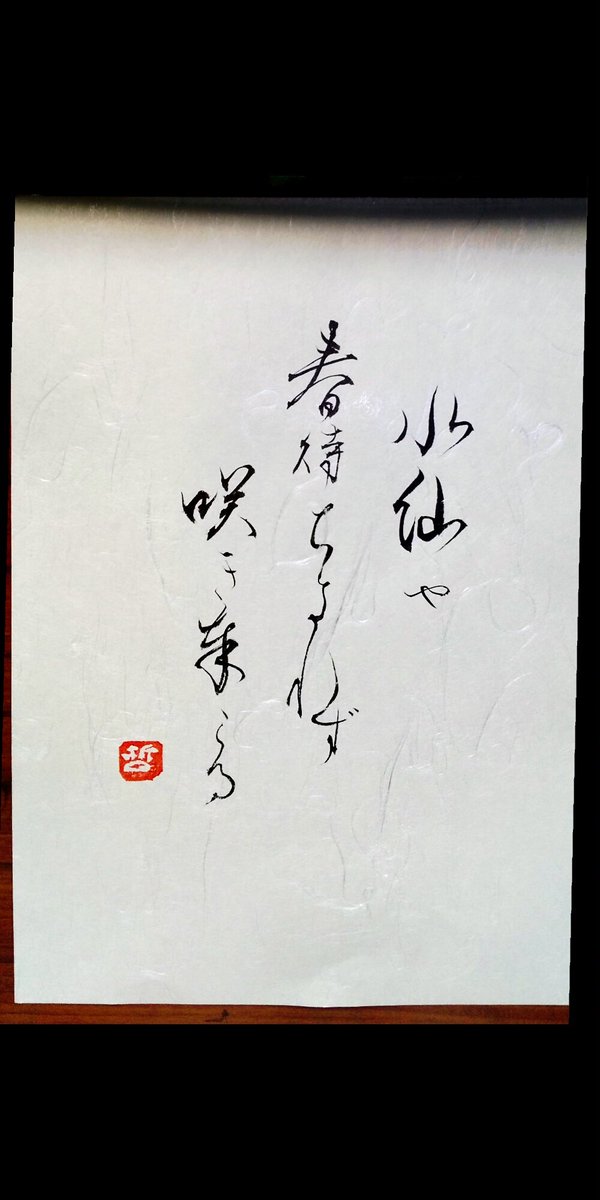 水仙や
春待ちきれず
咲き来たる
哲